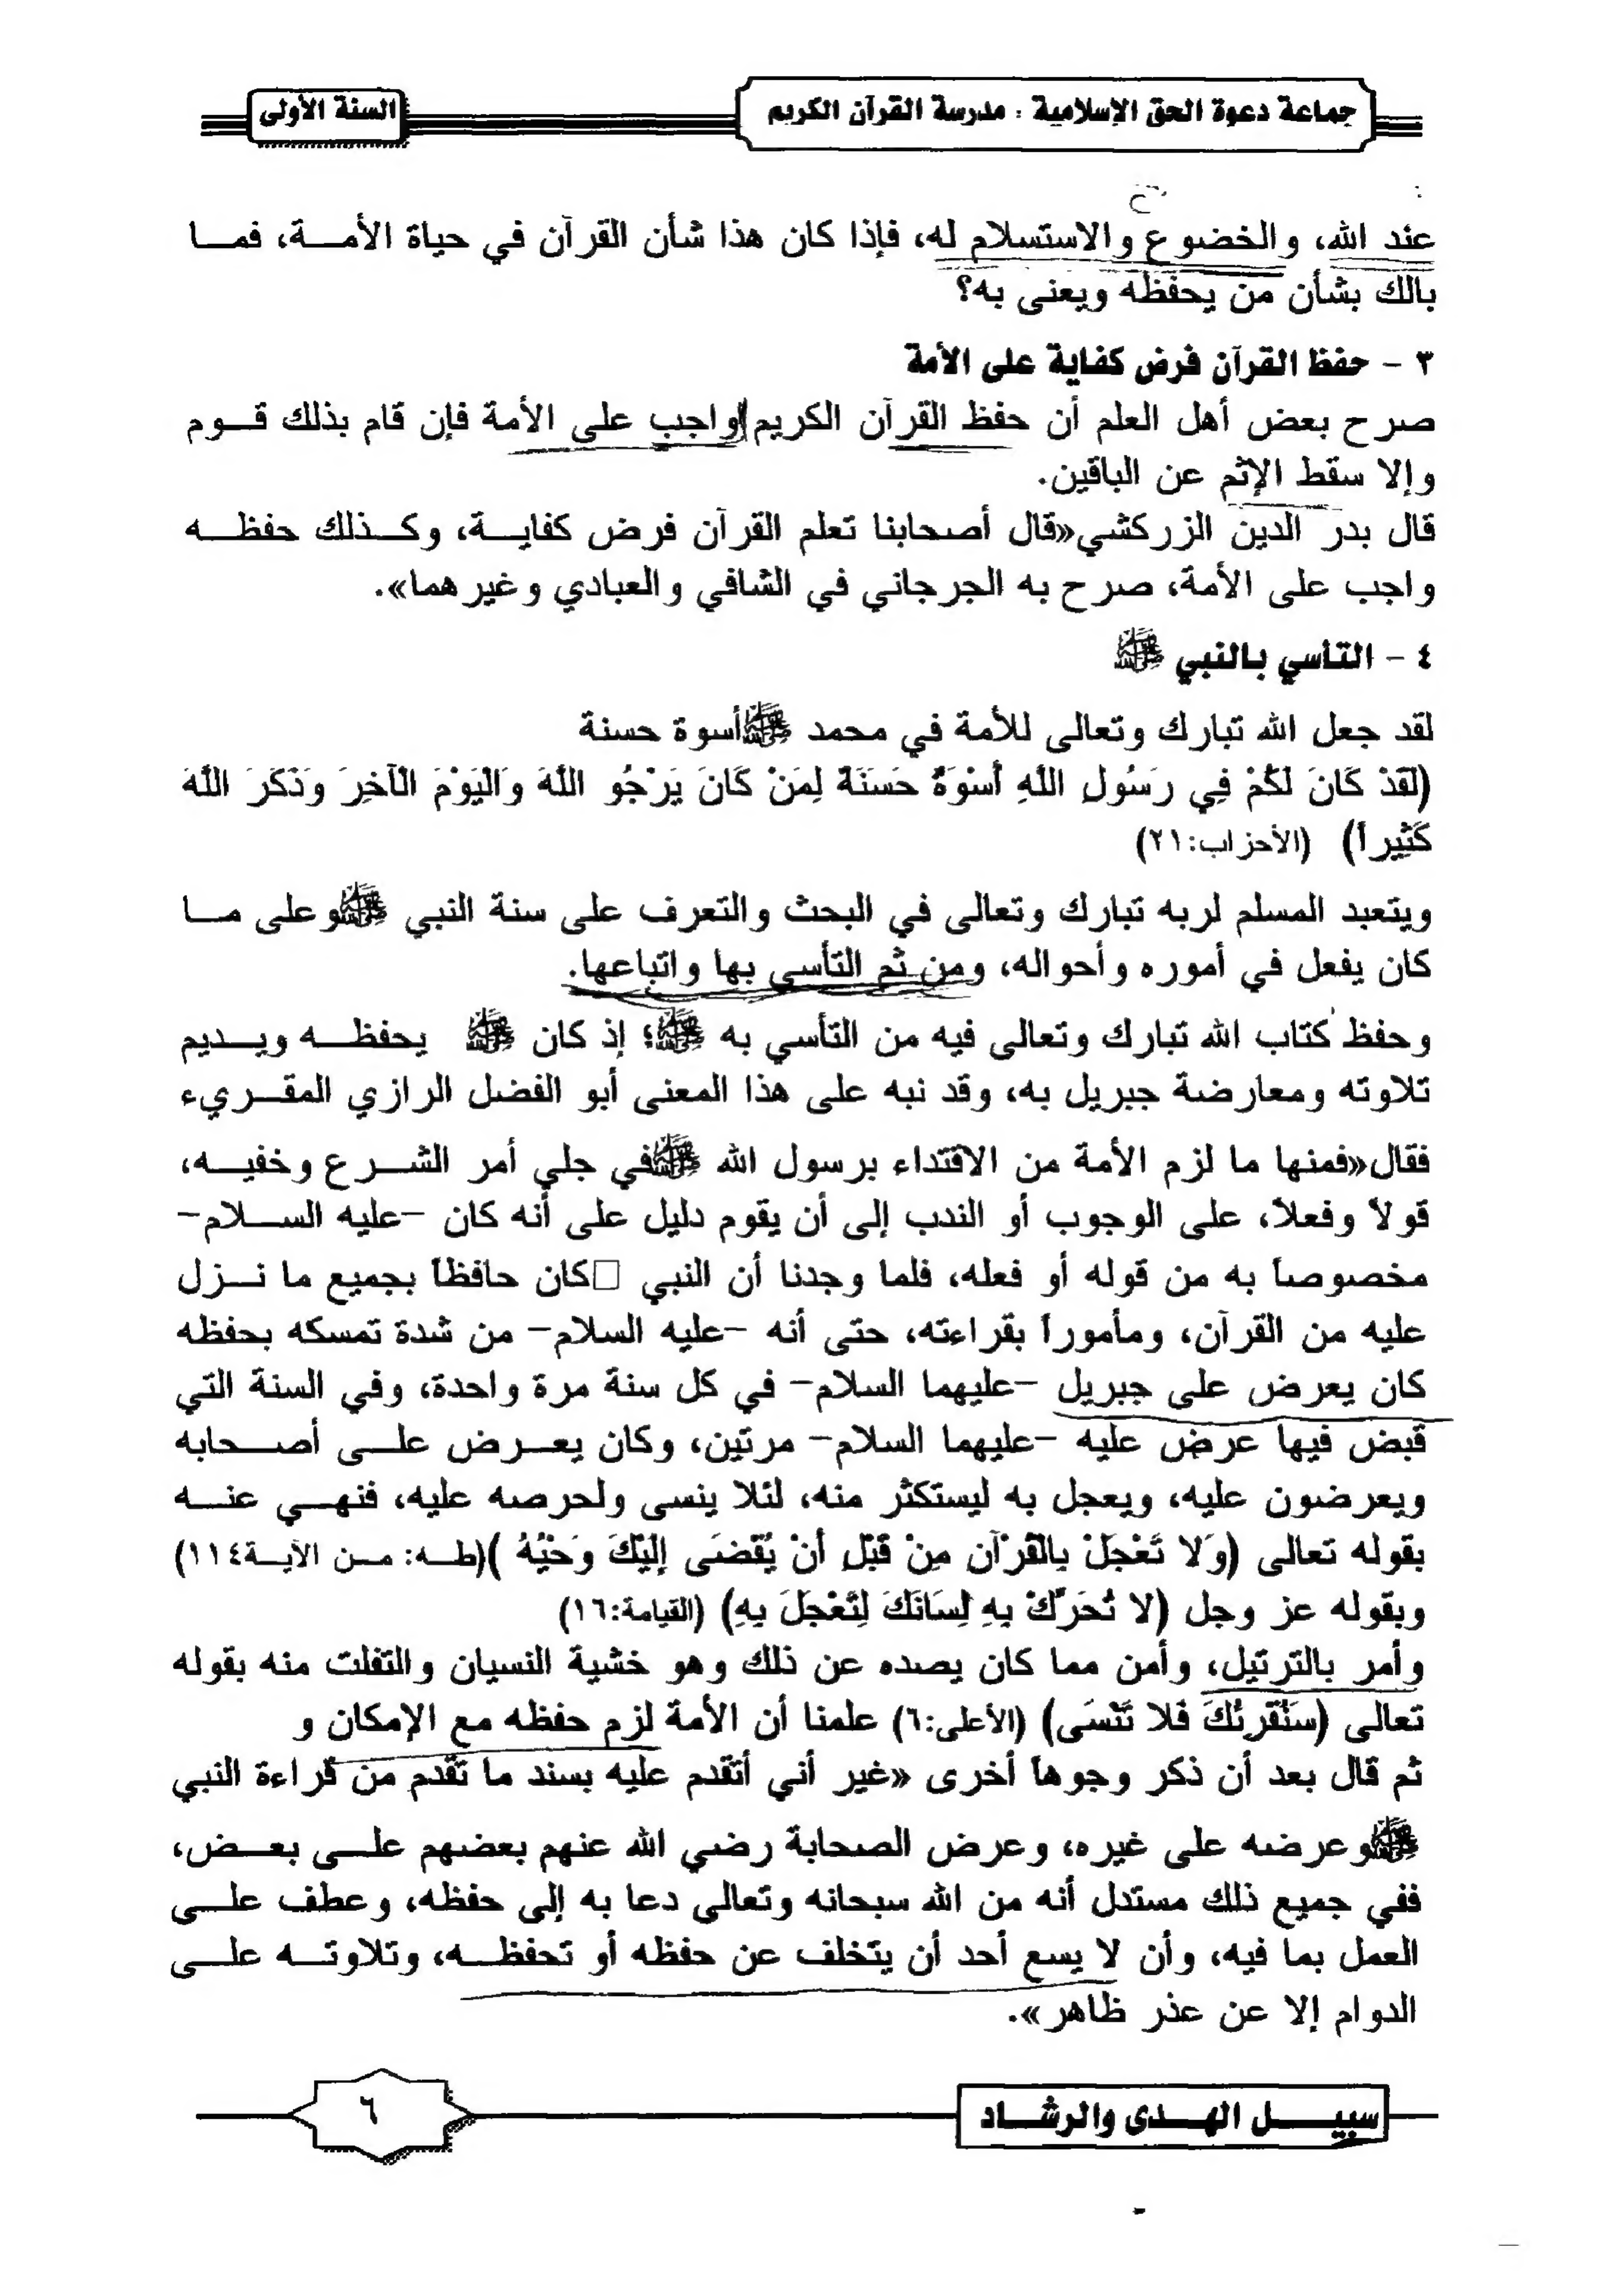 جماعة دعوة الحق الإسلامية : مدرسة القرآن الكريم
السنة الأولى
عند الله، والخضوع والاستسلام له، فإذا كان هذا شأن القرآن في حياة الأمة، فما
بالك بشأن من يحفظه ويعنى به؟
٣ - حفظ القرآن فرض كفاية على الأمة
صرح بعض أهل العلم أن حفظ القرآن الكريم واجب على الأمة فإن قام بذلك قوم
وإلا سقط الإثم عن الباقين.
قال بدر الدين الزركشي«قال أصحابنا تعلم القرآن فرض كفاية، وكذلك حفظه
واجب على الأمة، صرح به الجرجاني في الشافي والعبادي وغيرهما».
٤ - التأسي بالنبي ﷺ
لقد جعل الله تبارك وتعالى للأمة في محمد ﷺأسوة حسنة
(لَقَدْ كَانَ لَكُمْ فِي رَسُولِ اللَّهِ أُسْوَةٌ حَسَنَةٌ لِمَنْ كَانَ يَرْجُو اللَّهَ وَالْيَوْمَ الْآخِرَ وَذَكَرَ اللَّهَ
كَثِيراً) (الأحزاب:٢١)
ويتعبد المسلم لربه تبارك وتعالى في البحث والتعرف على سنة النبي ﷺوعلى ما
كان يفعل في أموره وأحواله، ومن ثم التأسي بها واتباعها.
وحفظ كتاب الله تبارك وتعالى فيه من التأسي به ﷺ؛ إذ كان ﷺ يحفظه ويديم
تلاوته ومعارضة جبريل به، وقد نبه على هذا المعنى أبو الفضل الرازي المقريء
فقال«فمنها ما لزم الأمة من الاقتداء برسول الله ﷺفي جلي أمر الشرع وخفيه،
قولاً وفعلاً، على الوجوب أو الندب إلى أن يقوم دليل على أنه كان -عليه السلام-
مخصوصاً به من قوله أو فعله، فلما وجدنا أن النبي □كان حافظاً بجميع ما نزل
عليه من القرآن، ومأموراً بقراءته، حتى أنه -عليه السلام- من شدة تمسكه بحفظه
كان يعرض على جبريل -عليهما السلام- في كل سنة مرة واحدة، وفي السنة التي
قبض فيها عرض عليه -عليهما السلام- مرتين، وكان يعرض على أصحابه
ويعرضون عليه، ويعجل به ليستكثر منه، لئلا ينسى ولحرصه عليه، فنهي عنه
بقوله تعالى (وَلا تَعْجَلْ بِالْقُرْآنِ مِنْ قَبْلِ أَنْ يُقْضَى إِلَيْكَ وَحْيُهُ )(طه: من الآية١١٤)
وبقوله عز وجل (لا تُحَرِّكْ بِهِ لِسَانَكَ لِتَعْجَلَ بِهِ) (القيامة:١٦)
وأمر بالترتيل، وأمن مما كان يصده عن ذلك وهو خشية النسيان والتفلت منه بقوله
تعالى (سَنُقْرِئُكَ فَلا تَنْسَى) (الأعلى:٦) علمنا أن الأمة لزم حفظه مع الإمكان و
ثم قال بعد أن ذكر وجوهاً أخرى «غير أني أتقدم عليه بسند ما تقدم من قراءة النبي
ﷺوعرضه على غيره، وعرض الصحابة رضي الله عنهم بعضهم على بعض،
ففي جميع ذلك مستدل أنه من الله سبحانه وتعالى دعا به إلى حفظه، وعطف على
العمل بما فيه، وأن لا يسع أحد أن يتخلف عن حفظه أو تحفظه، وتلاوته على
الدوام إلا عن عذر ظاهر».
سبيل الهدى والرشاد
٦